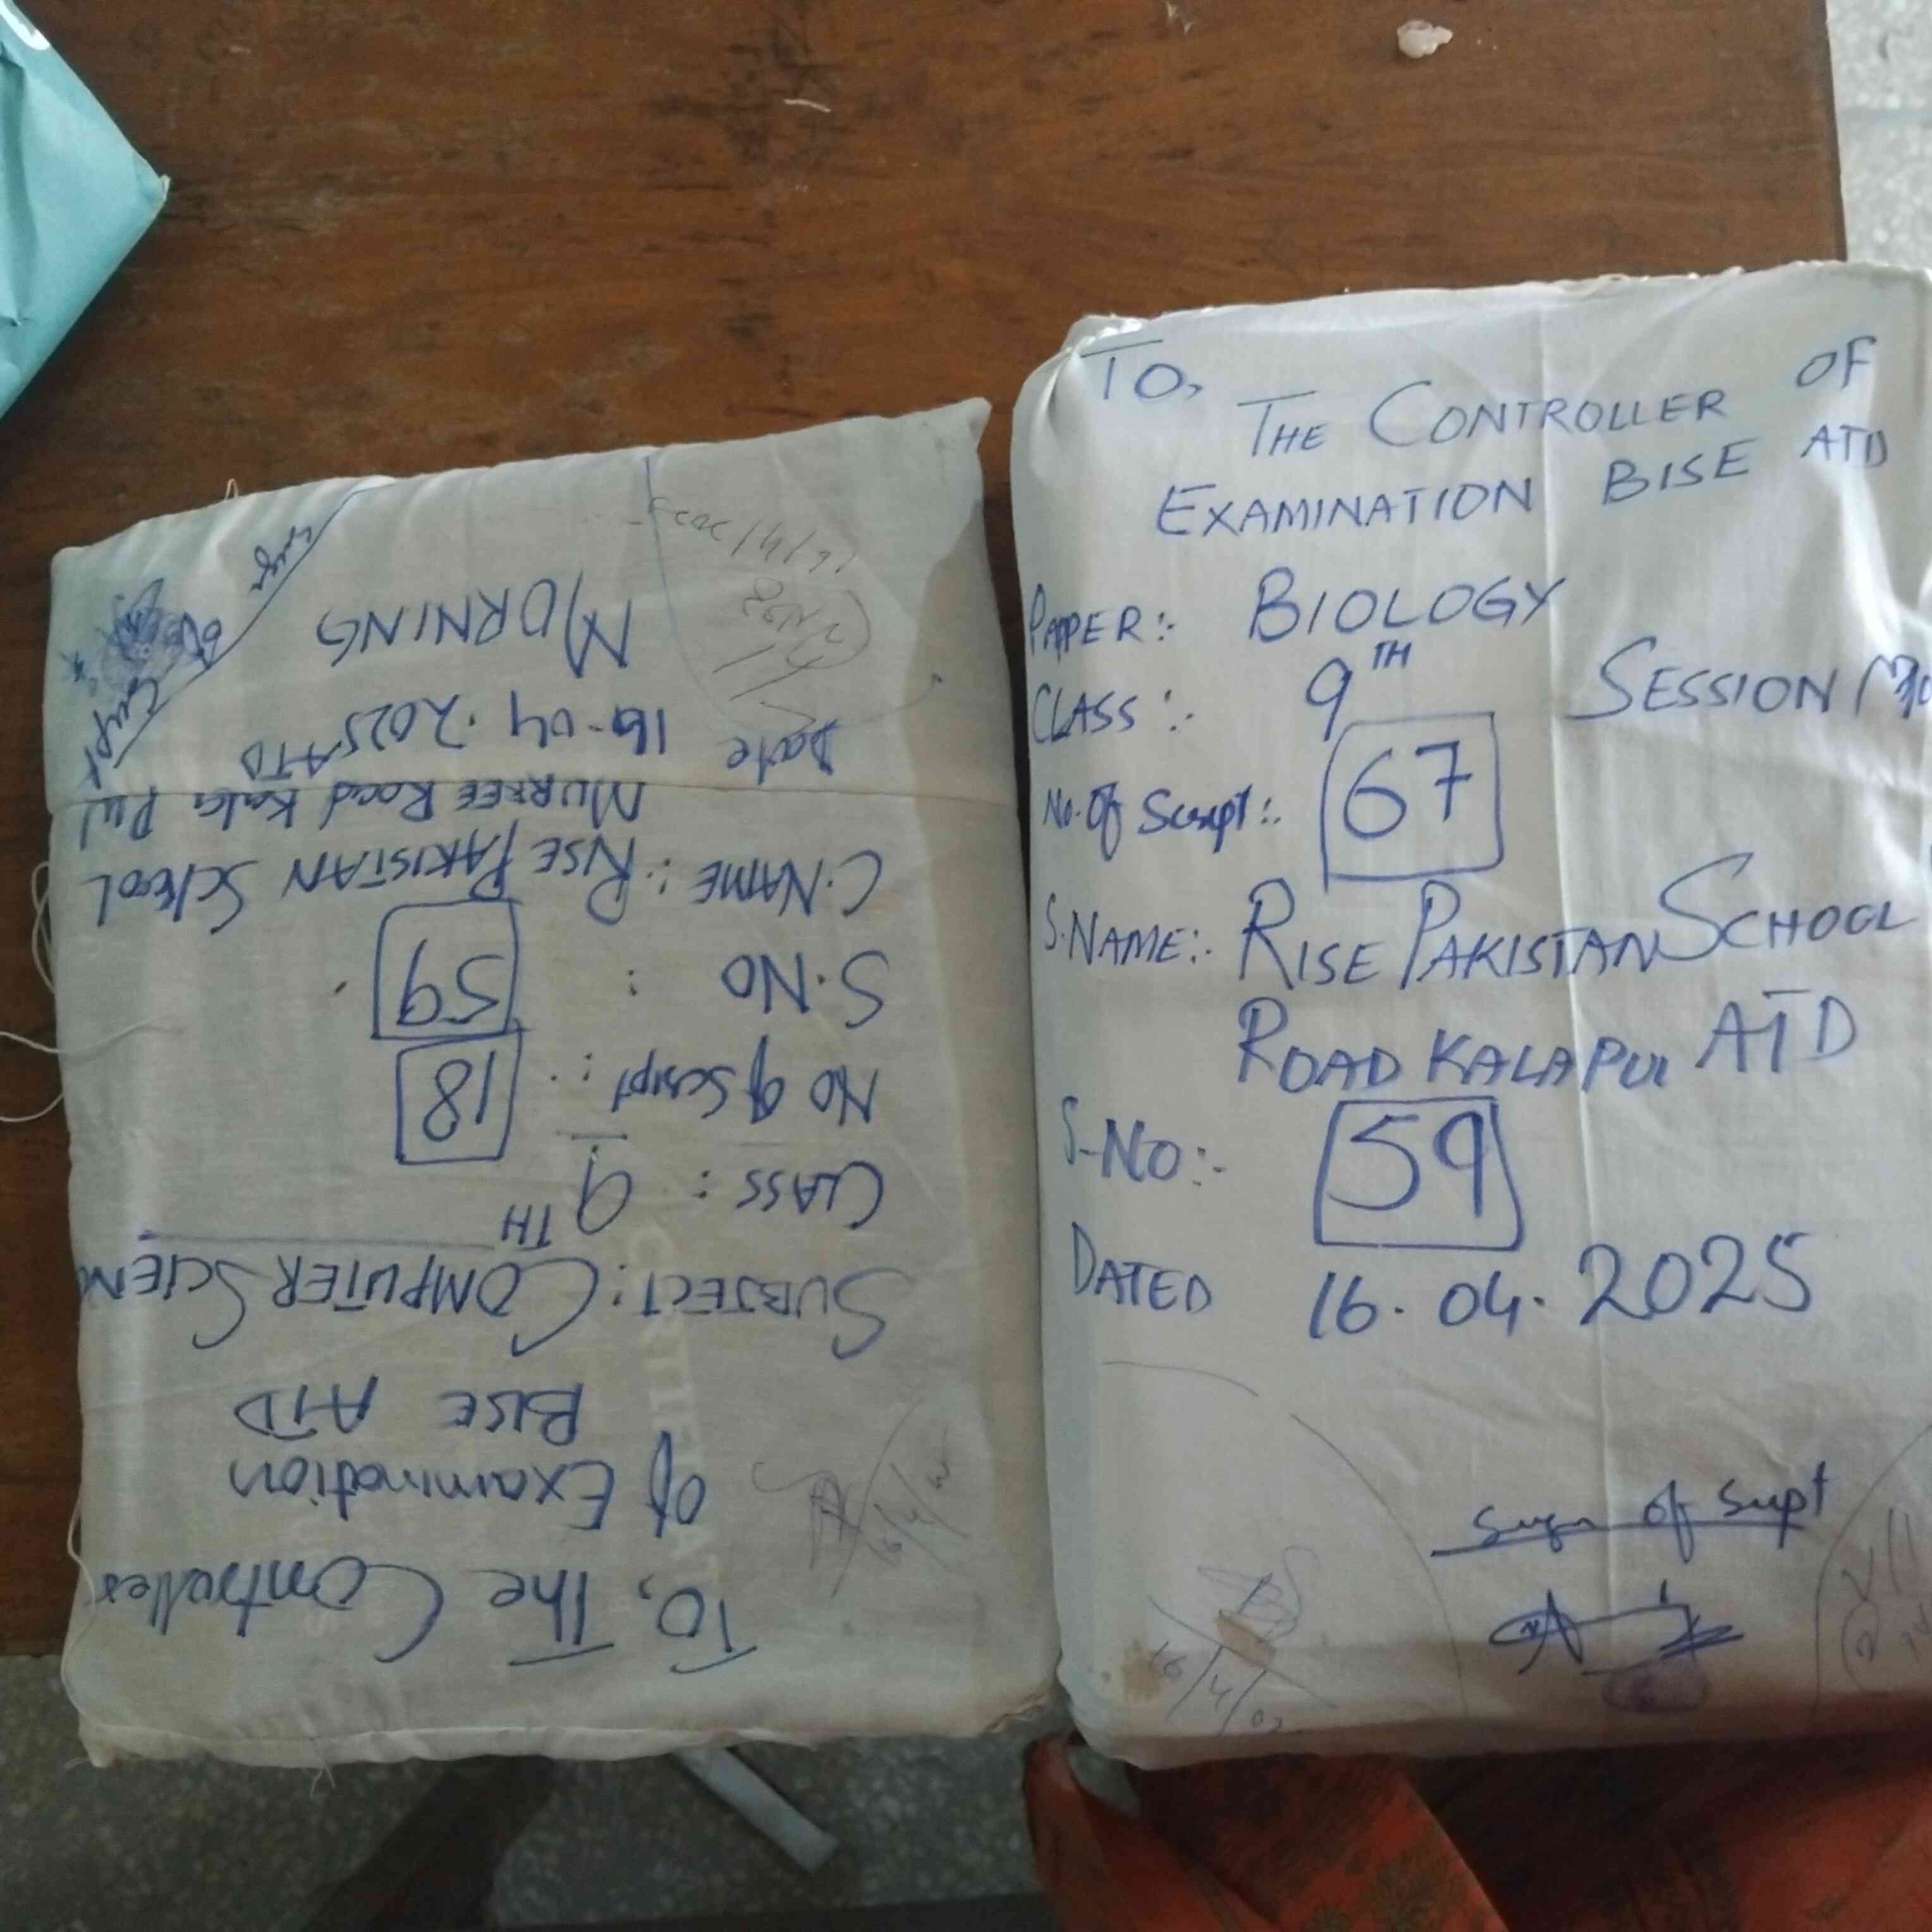 TO,
THE CONTROLLER OF
EXAMINATION BISE ATD
PAPER:- BIOLOGY
CLASS:- 9TH SESSION
No. Of Script:- 67
S.NAME:- RISE PAKISTAN SCHOOL
ROAD KALAPUL ATD
S-NO:- 59
DATED 16.04.2025
Sign of Supt
16/4/
To, The Controller
of Examination
BISE ATD
SUBJECT: COMPUTER SCIENC
CLASS: 9TH
No of Script: 18
S.NO : 59
C.NAME: RISE PAKISTAN SCHOOL
MURREE Road Kala Pul
ATD
Date 16-04.2025
MORNING
Sign of Supt
16/4/